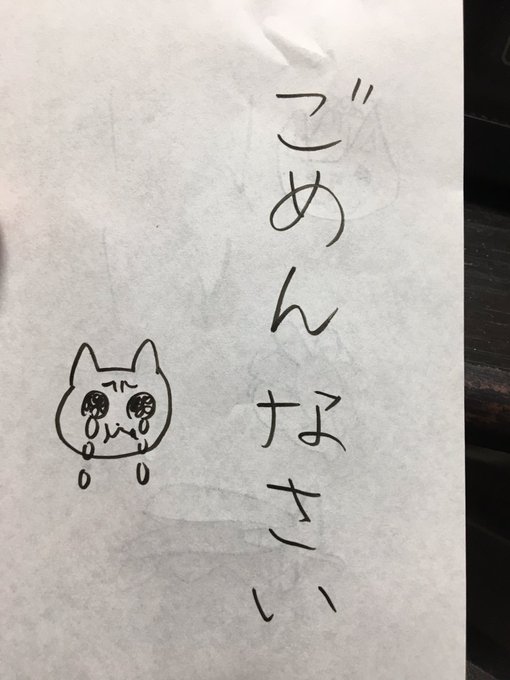 ごめんなさい